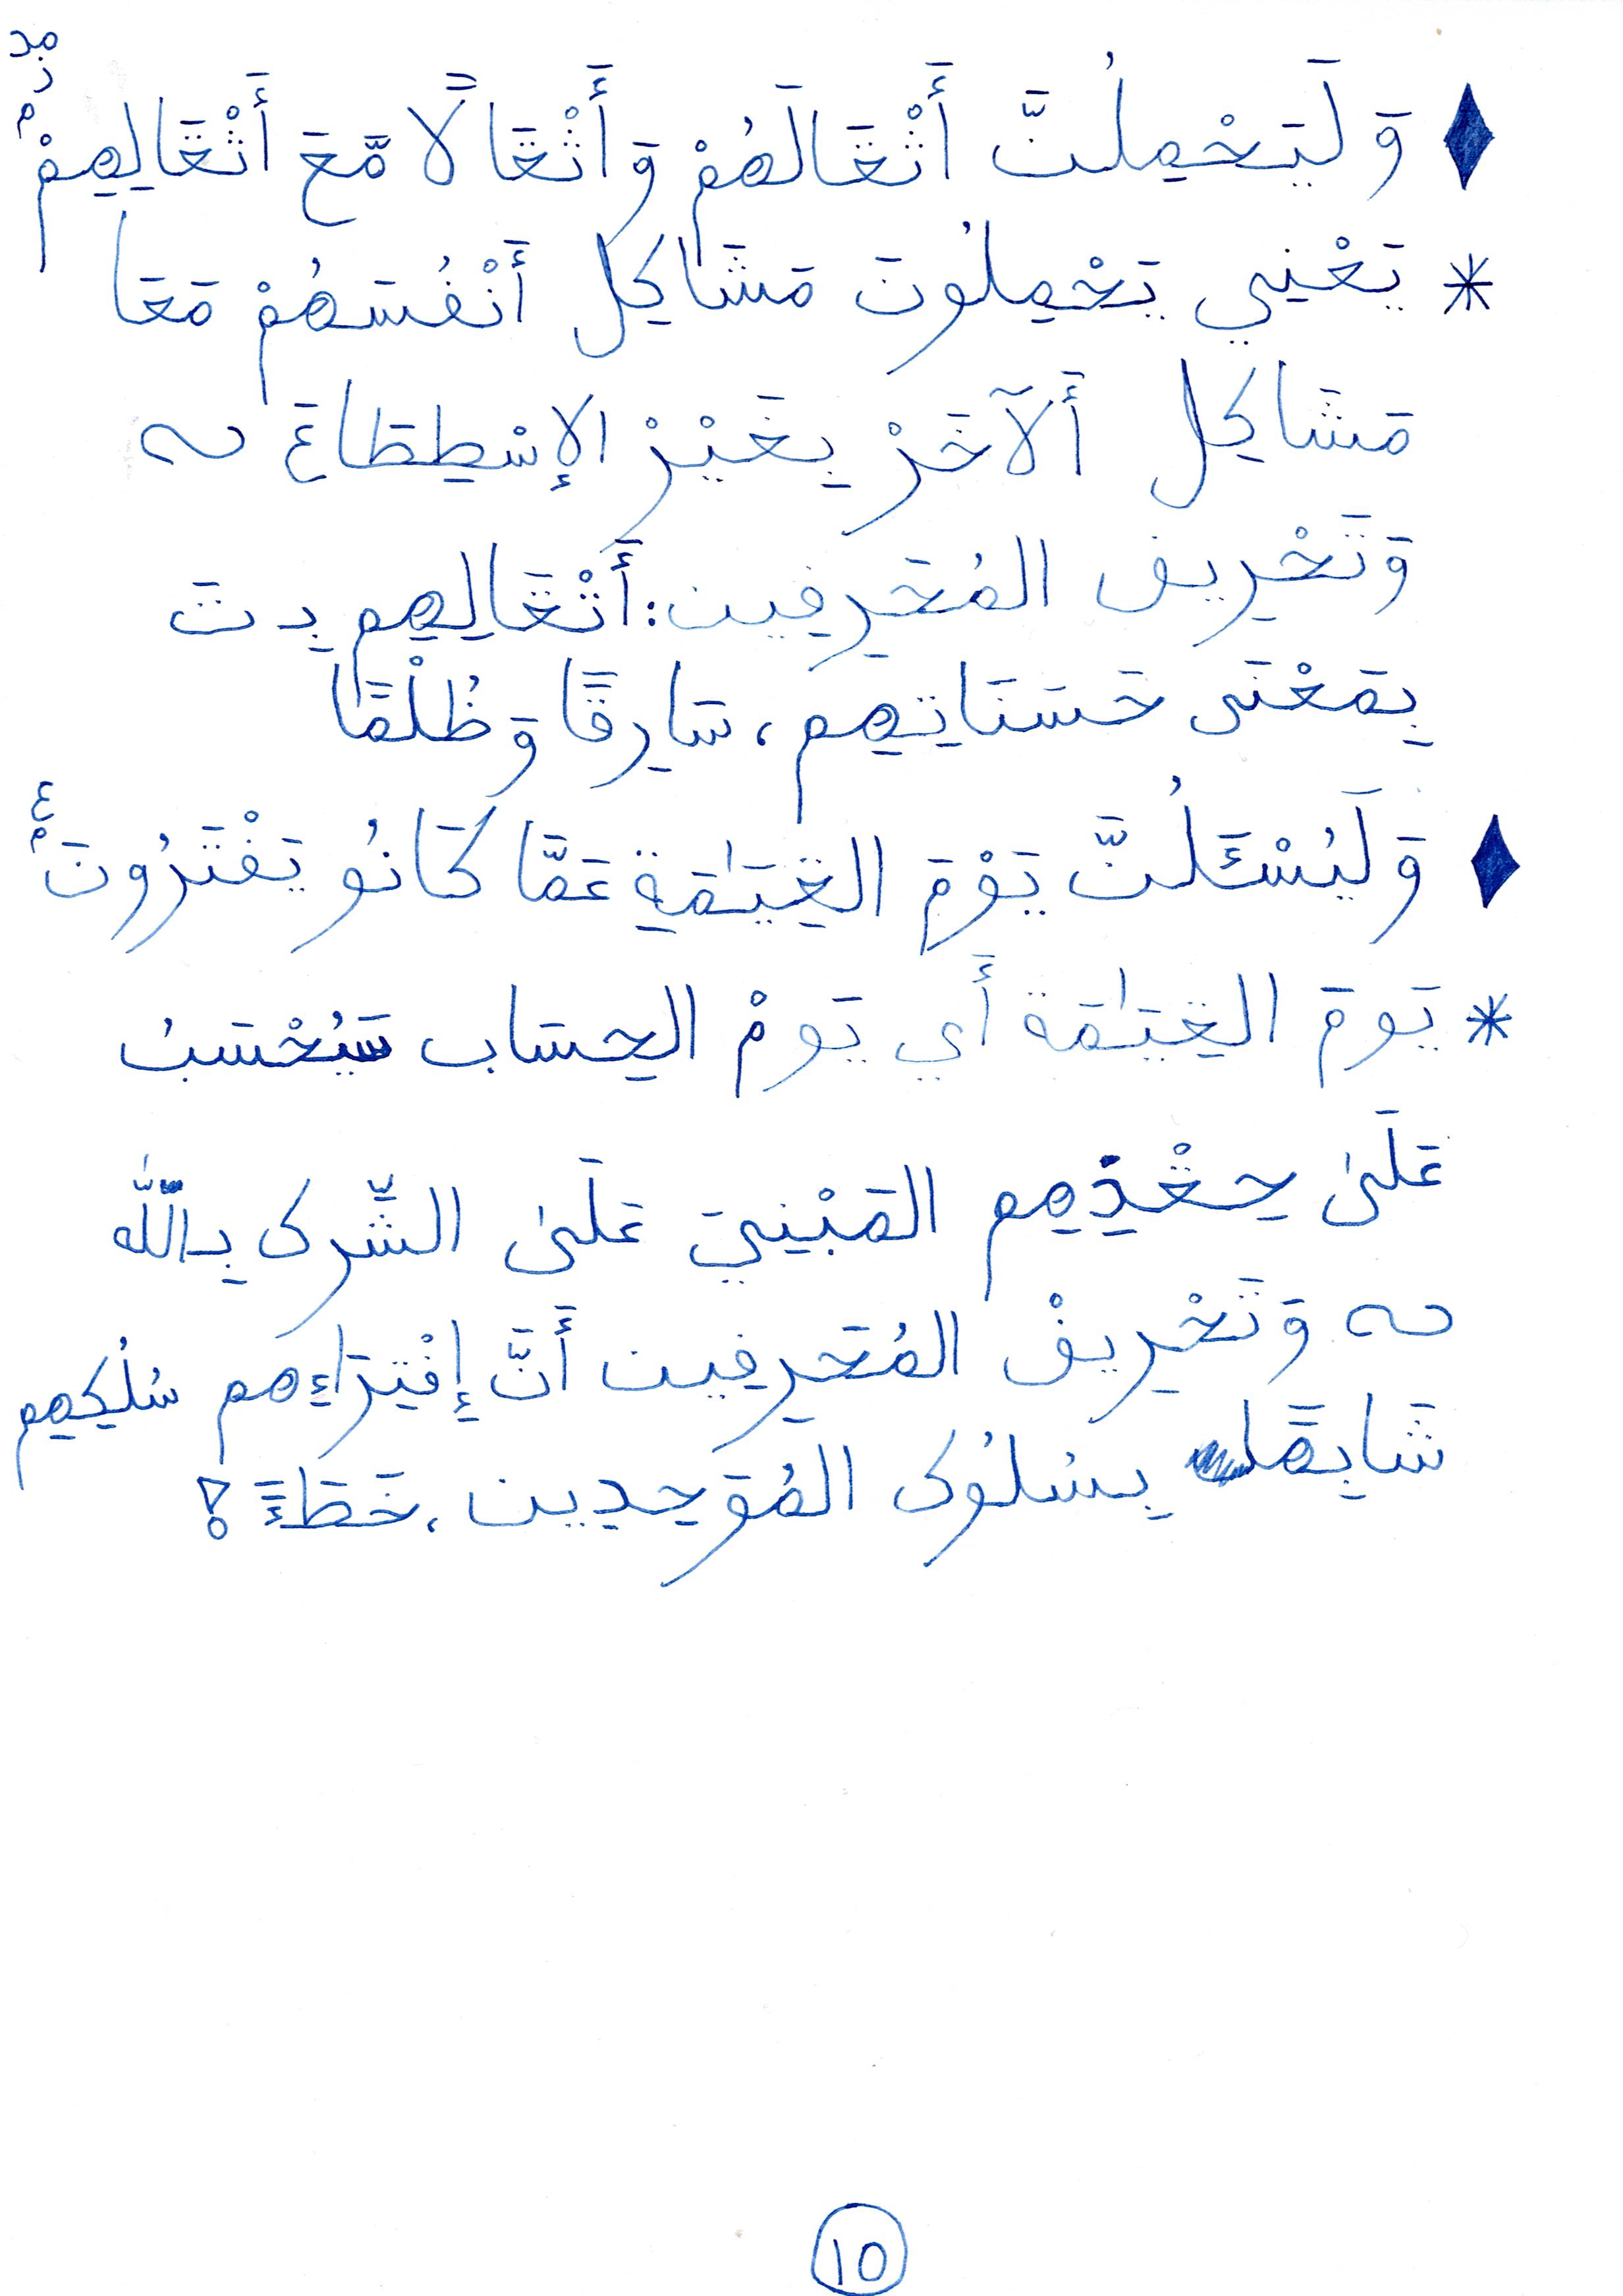 مد
♦ وَلَيَحْمِلُنَّ أَثْقَالَهُمْ وَأَثْقَالًا مَّعَ أَثْقَالِهِمْ
* يَعْنِي يَحْمِلُونَ مَشَاكِل أَنْفُسَهُمْ مَعَا
مَشَاكِل أَلآخَرْ بِغَيْرْ الإِسْطِطَاعَ ~
وَتَحْرِيف المُحَرِفِين: أَثْقَالِهِم بِـ تَ
بِمَعْنَى حَسَنَاتِهِم، سَارِقًا وَظُلْمًا
♦ وَلَيُسْـَٔلُنَّ يَوْمَ القِيَٰمَةِ عَمَّا كَانُو يَفْتَرُونَ
* يَومَ القِيَٰمَة أَي يَومْ الحِسَاب سَيُحْسَبُ
عَلَىٰ حِقْدِهِم المَبْنِيَ عَلَىٰ الشِّرك بِاللَّه
~ وَتَحْرِيفْ المُحَرِفِين أَنَّ إِفْتِرَاءِهِم سُلُكِهِم
شَابِهًا بِسُلُوك المُوَحِدِين، خَطَاءً؟
10